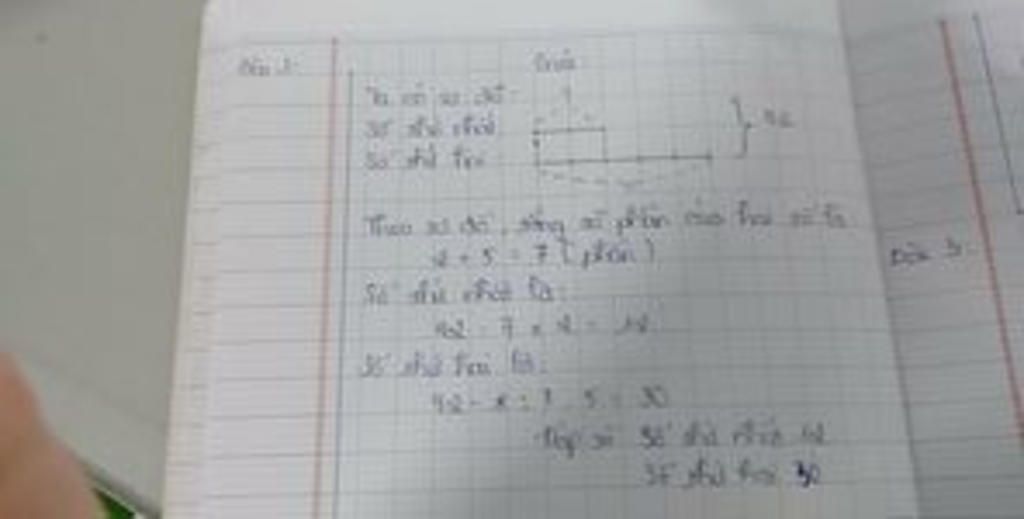 Bài 1: Giải
Ta có sơ đồ:
Số thứ nhất
Số thứ hai 42
Theo sơ đồ, tổng số phần của hai số là
2 + 5 = 7 (phần)
Số thứ nhất là:
42 : 7 x 2 = 12
Số thứ hai là:
42 : 7 5 = 30
Đáp số Số thứ nhất 12
Số thứ hai 30
Bài 3: